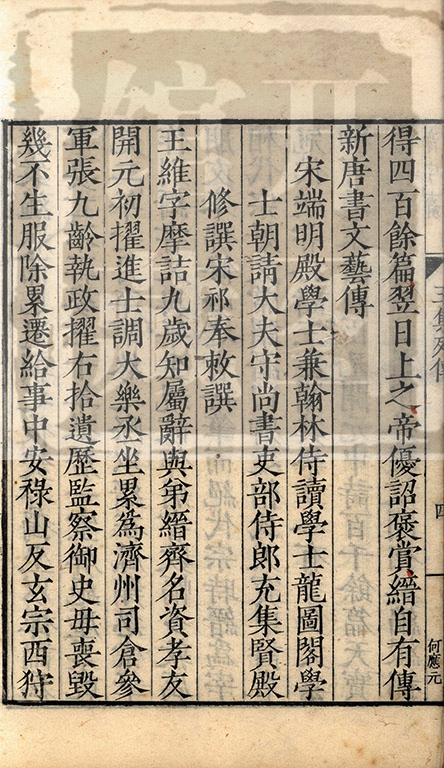 得四百餘篇翌日上之帝優詔褒賞縉自有傳
新唐書文藝傳
宋端明殿學士兼翰林侍讀學士龍圖閣學
士朝請大夫守尚書吏部侍郎充集賢殿
修譔宋祁奉敕譔
王維字摩詰九歲知屬辭與弟縉齊名資孝友
開元初擢進士調大樂丞坐累為濟州司倉參
軍張九齡執政擢右拾遺歷監察御史毋喪毀
幾不生服除累遷給事中安祿山反玄宗西狩
四
何應元